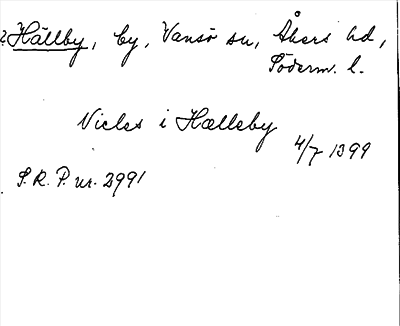 ? Hällby, by, Vansö sn, Åkers hd,
Söderm. l.
Niclas i Hælleby
4/7 1399
S.R.P. nr. 2991